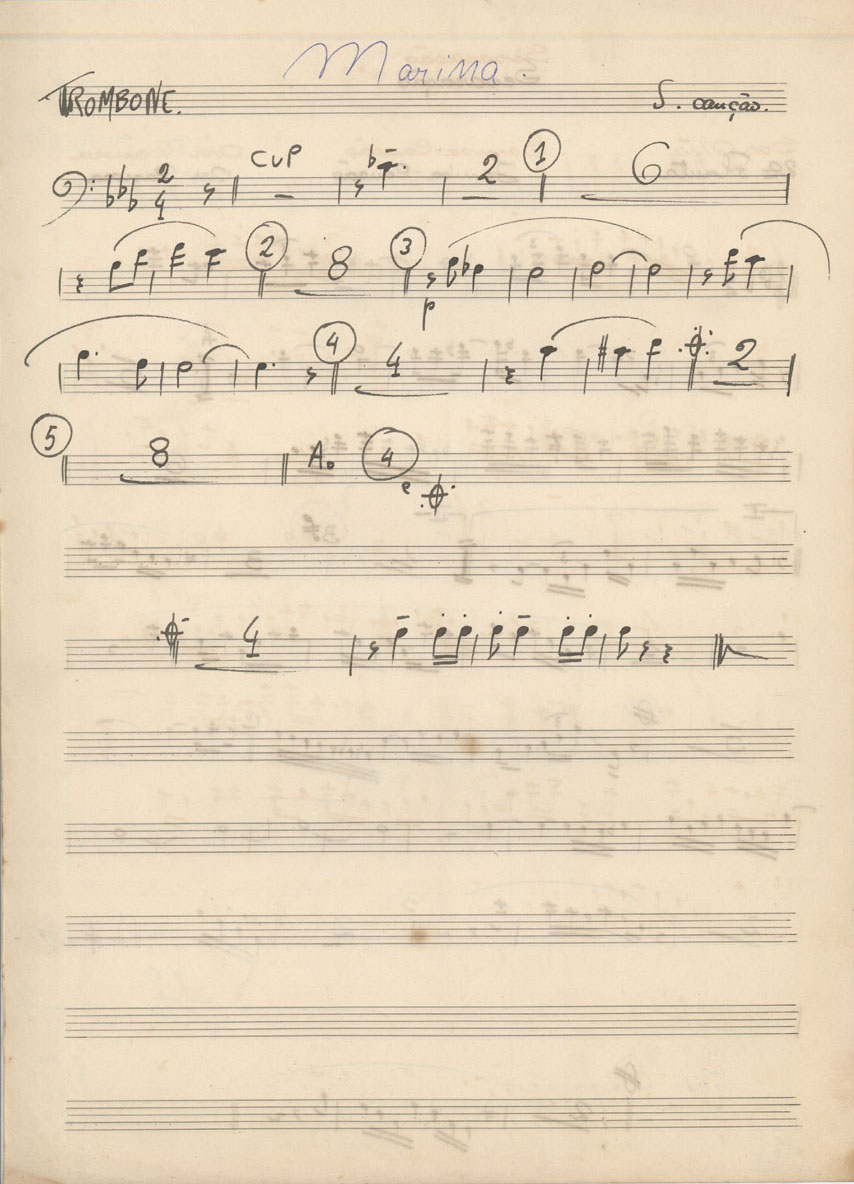 Marina.
TROMBONE. S. canção.
2 4 CUP 2 1 6
2 8 3
p
4 4 2
5 8 Ao 4
e
4